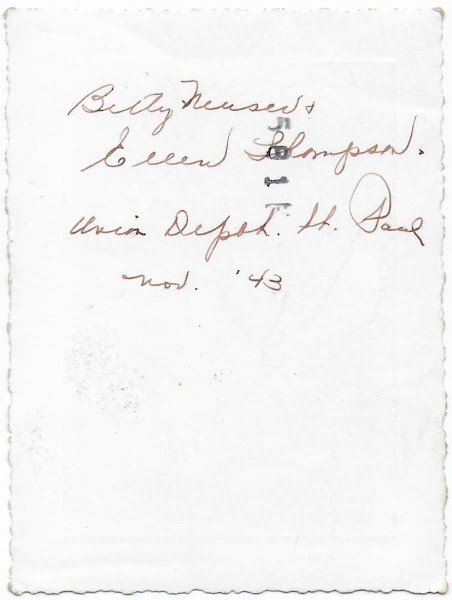 Betty Neuser &
Ellen Thompson.
Union Depot. St. Paul
Nov. '43